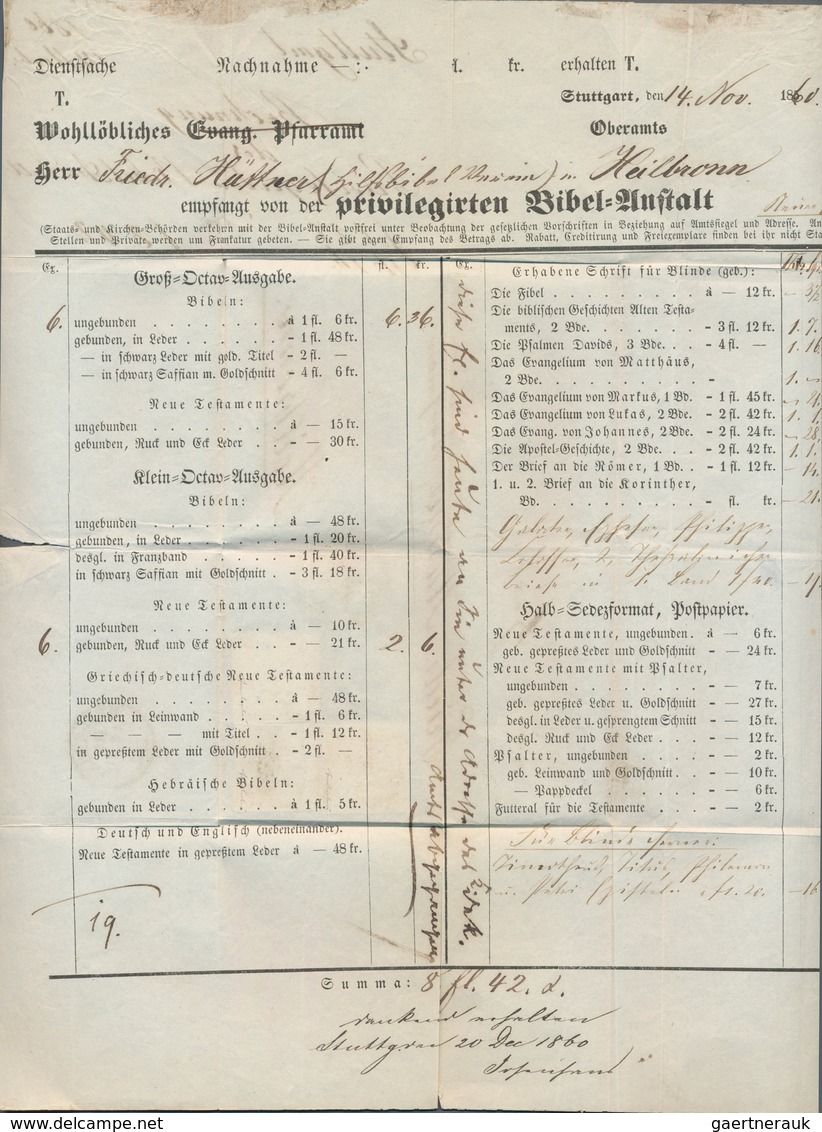 Dienstsache Nachnahme — : fl. kr. erhalten T.
T.
Stuttgart, den 14. Nov. 1860.
Wohllöbliches Evang. Pfarramt Oberamts
Herr Friedr. Hüttner (Hilfsbibel Verein) in Heilbronn
empfangt von der privilegirten Bibel=Anstalt
(Staats= und Kirchen=Behörden verkehren mit der Bibel=Anstalt postfrei unter Beobachtung der gesetzlichen Vorschriften in Beziehung auf Amtssiegel und Adresse. An
Stellen und Private werden um Frankatur gebeten. — Sie gibt gegen Empfang des Betrags ab. Rabatt, Creditirung und Freiexemplare finden bei ihr nicht Sta
Ex. fl. kr.
Groß=Octav=Ausgabe.
Bibeln:
6. ungebunden . . . . . . . . à 1 fl. 6 kr. 6. 36.
gebunden, in Leder . . . . . . - 1 fl. 48 kr.
— in schwarz Leder mit gold. Titel - 2 fl. —
— in schwarz Saffian m. Goldschnitt - 4 fl. 6 kr.
Neue Testamente:
ungebunden . . . . . . . . à — 15 kr.
gebunden, Ruck und Eck Leder . . - — 30 kr.
Klein=Octav=Ausgabe.
Bibeln:
ungebunden . . . . . . . . à — 48 kr.
gebunden, in Leder . . . . . . - 1 fl. 20 kr.
desgl. in Franzband . . . . . - 1 fl. 40 kr.
in schwarz Saffian mit Goldschnitt . - 3 fl. 18 kr.
Neue Testamente:
ungebunden . . . . . . . . à — 10 kr.
6. gebunden, Ruck und Eck Leder . . - — 21 kr. 2. 6.
Griechisch=deutsche Neue Testamente:
ungebunden . . . . . . . . à — 48 kr.
gebunden in Leinwand . . . . . - 1 fl. 6 kr.
— — — mit Titel . . - 1 fl. 12 kr.
in gepreßtem Leder mit Goldschnitt . - 2 fl. —
Hebräische Bibeln:
gebunden in Leder . . . . . . à 1 fl. 5 kr.
Deutsch und Englisch (nebeneinander).
Neue Testamente in gepreßtem Leder à — 48 kr.
19.
diese fl. sind heute an Sie unter der Adresse des
Ex.
Erhabene Schrift für Blinde (geb.):
Die Fibel . . . . . . . . . à — 12 kr.
Die biblischen Geschichten Alten Testa=
ments, 2 Bde. . . . . . . - 3 fl. 12 kr. 1. 7.
Die Psalmen Davids, 3 Bde. . . - 4 fl. — 1. 16
Das Evangelium von Matthäus,
2 Bde. . . . . . . . . . - 1.
Das Evangelium von Markus, 1 Bd. - 1 fl. 45 kr.
Das Evangelium von Lukas, 2 Bde. - 2 fl. 42 kr. 1. 1.
Das Evang. von Johannes, 2 Bde. - 2 fl. 24 kr. 28.
Die Apostel=Geschichte, 2 Bde. . . - 2 fl. 42 kr. 1. 1.
Der Brief an die Römer, 1 Bd. . - 1 fl. 12 kr. — 14.
1. u. 2. Brief an die Korinther,
Bd. . . . . . . . . . - fl. kr. — 21.
Galater, Epheser, Philipper,
Halb=Sedezformat, Postpapier.
Neue Testamente, ungebunden . à — 6 kr.
geb. gepreßtes Leder und Goldschnitt - — 24 kr.
Neue Testamente mit Psalter,
ungebunden . . . . . . . . - — 7 kr.
geb. gepreßtes Leder u. Goldschnitt - — 27 kr.
desgl. in Leder u. gesprengtem Schnitt - — 15 kr.
desgl. Ruck und Eck Leder . . . - — 12 kr.
Psalter, ungebunden . . . . . - — 2 kr.
geb. Leinwand und Goldschnitt . . - — 10 kr.
— Pappdeckel . . . . . . - — 6 kr.
Futteral für die Testamente . . . - — 2 kr.
Für Blinde ferner:
Timotheus, Titus, Philemon
u. Petri Episteln à fl. 20. — 16
Summa: 8 fl. 42. x.
dankend erhalten
Stuttgart 20 Dec 1860
Josenhans
gaertnerauk